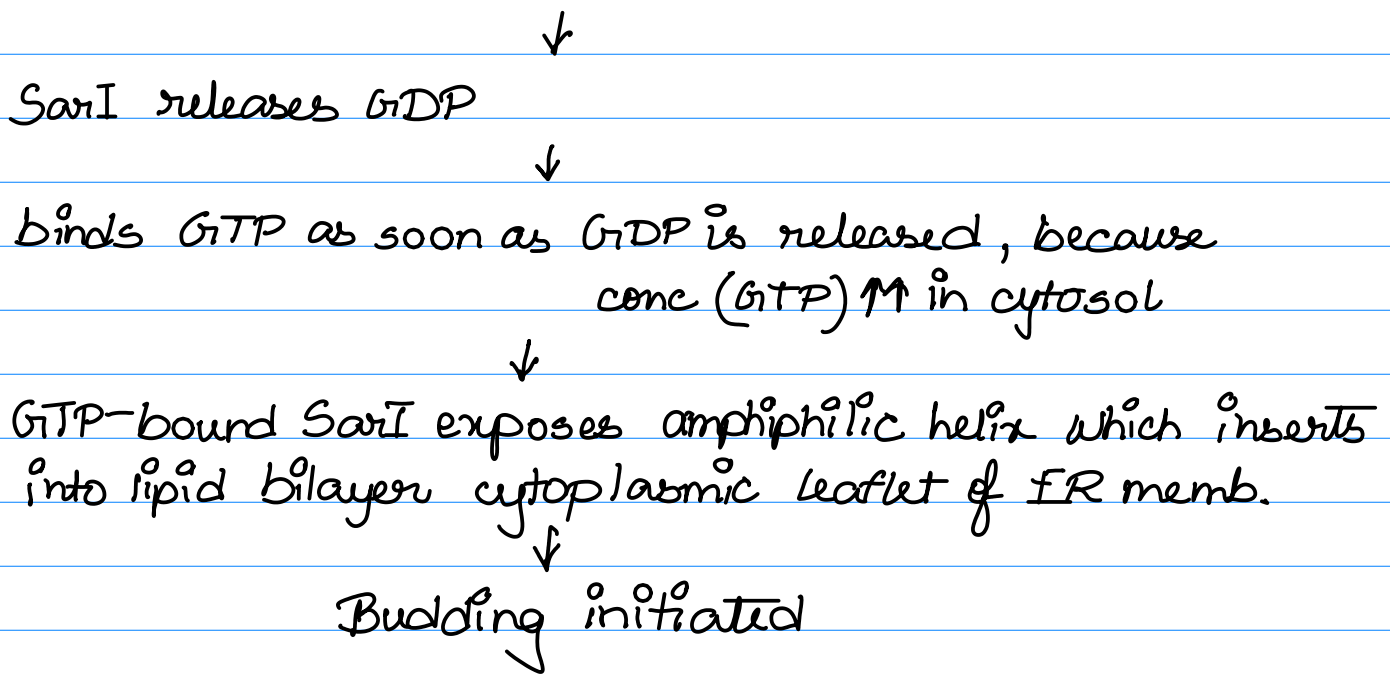 ↓
SarI releases GDP
↓
binds GTP as soon as GDP is released, because
conc (GTP) ↑↑ in cytosol
↓
GTP-bound SarI exposes amphiphilic helix which inserts
into lipid bilayer cytoplasmic leaflet of ER memb.
↓
Budding initiated